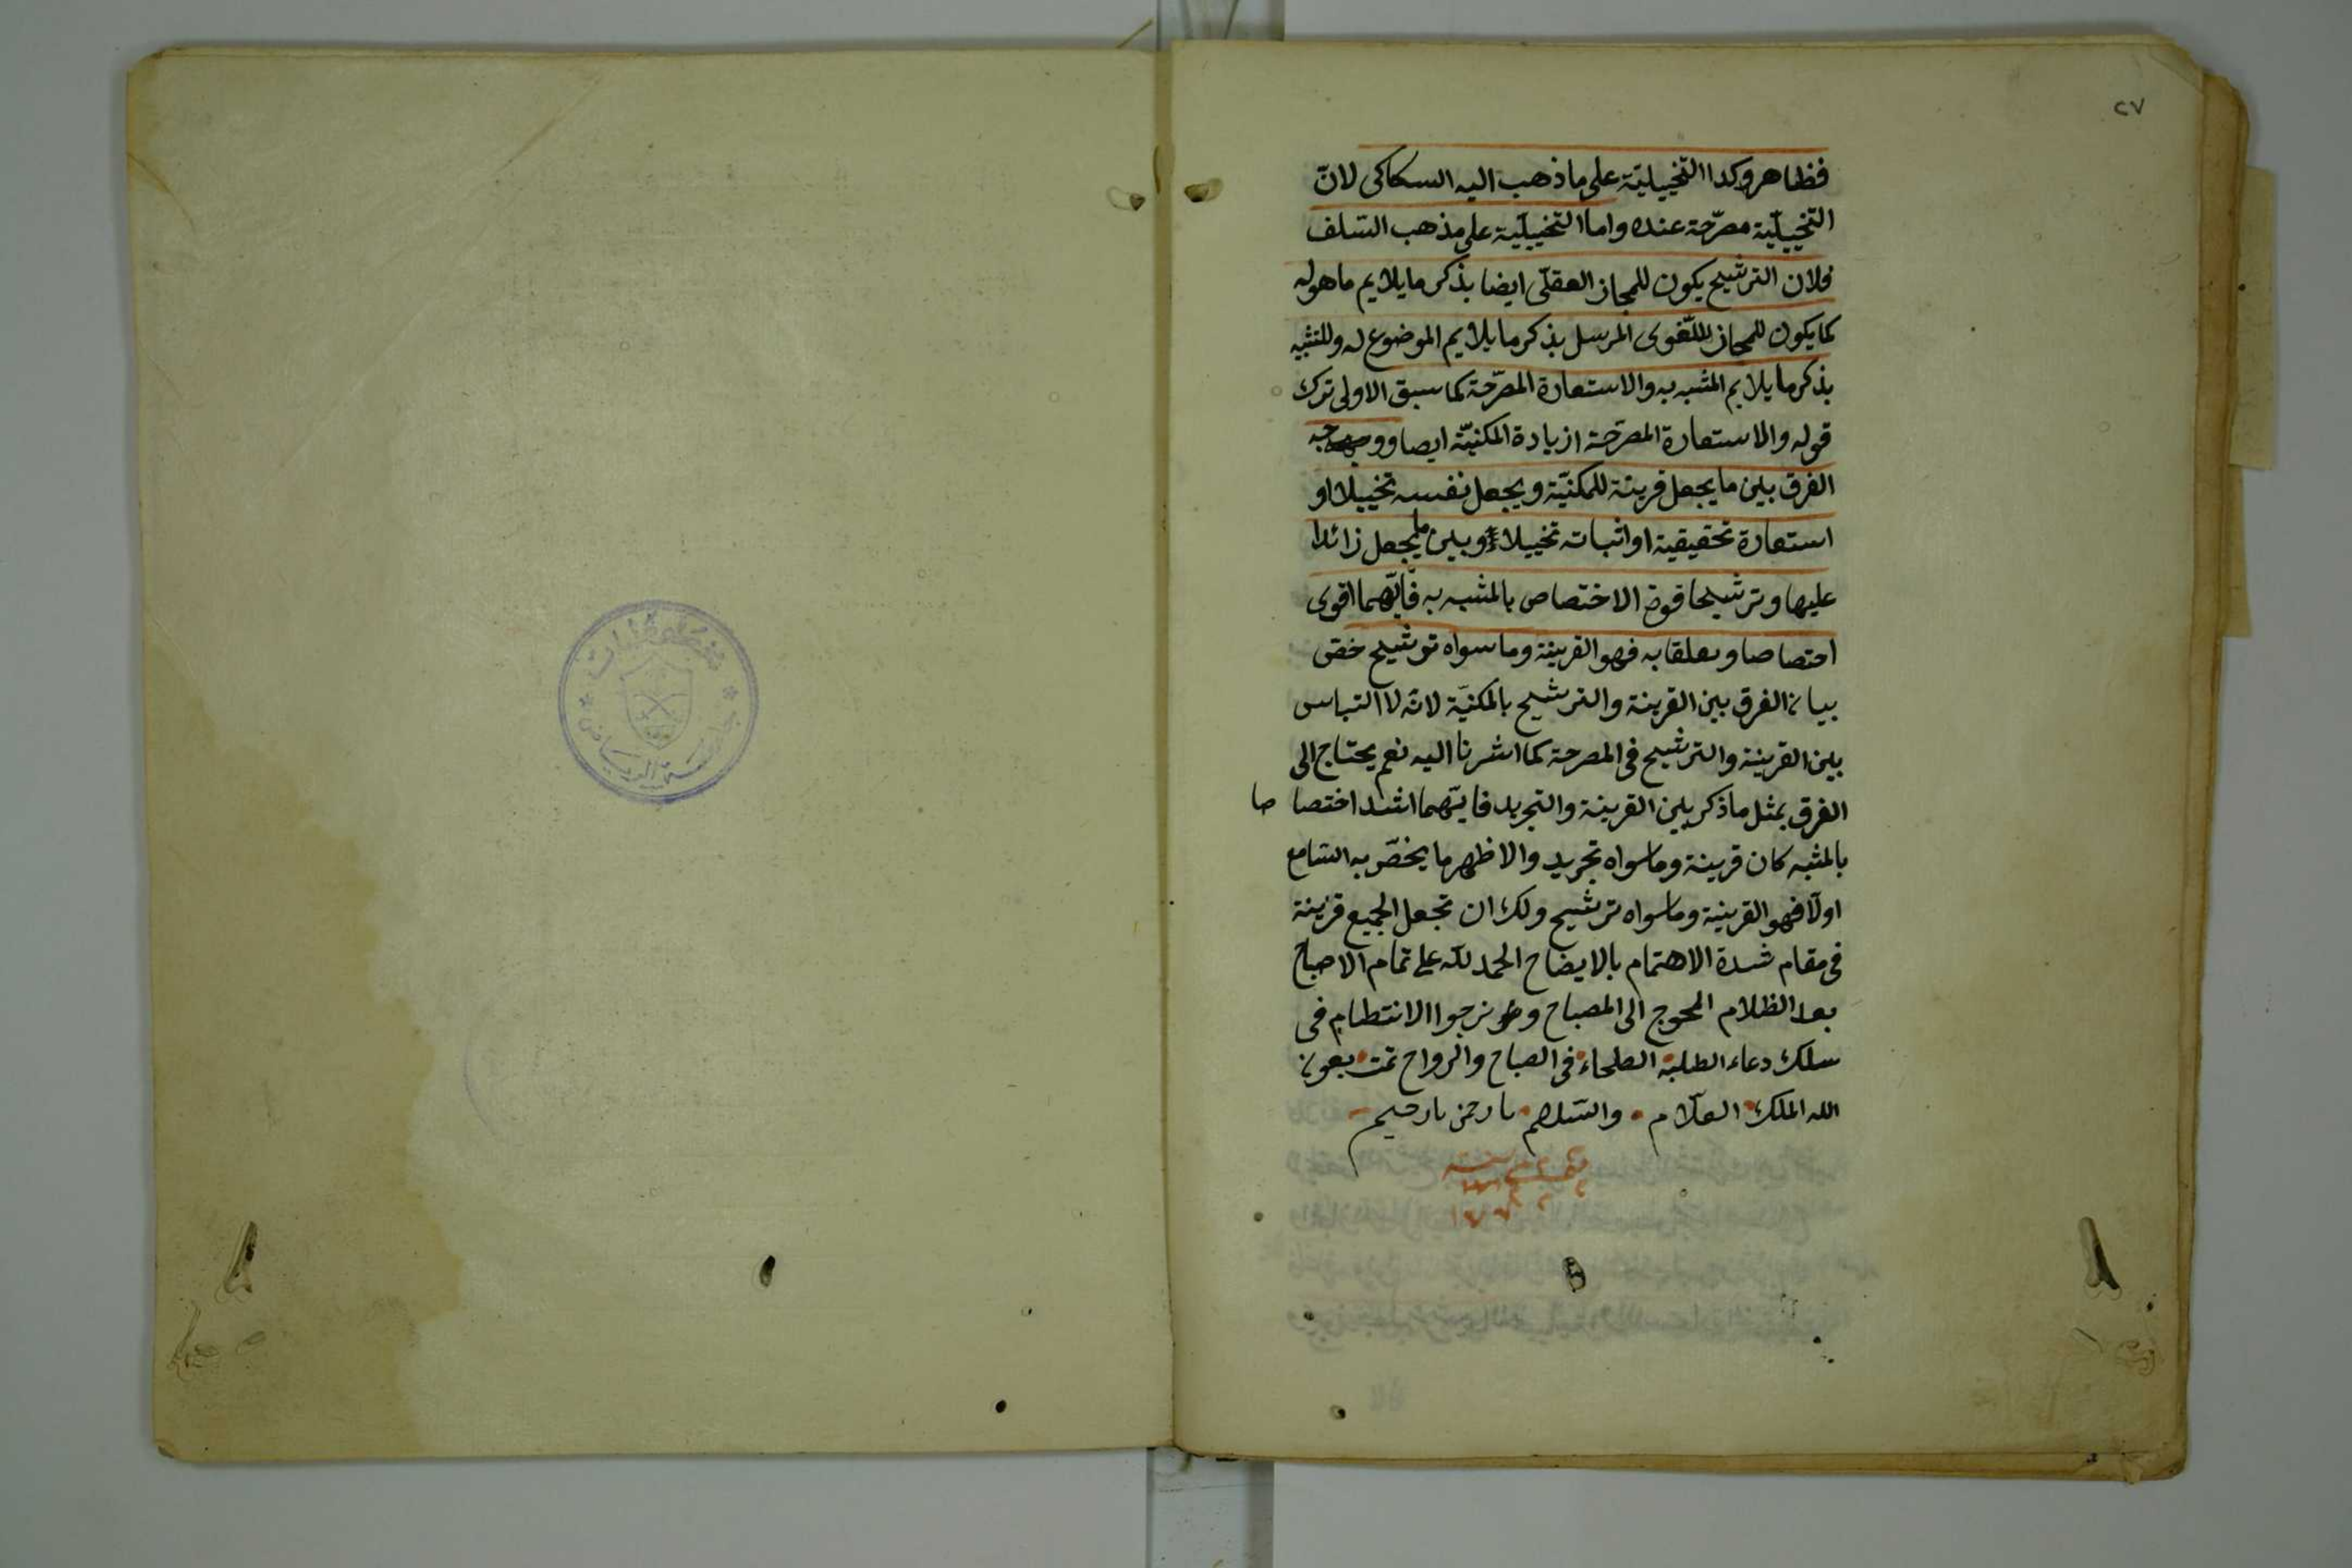 ٢٧
فظاهر وكدا التخييليّة على ما ذهب اليه السكاكى لانّ
التخييليّة مصرّحة عنده واما التخييليّة على مذهب السّلف
فلان الترشيح يكون للمجاز العقلّى ايضا بذكر ما يلايم ما هو له
كما يكون للمجاز اللّغوى المرسل بذكر ما يلايم الموضوع له وللتشبيه
بذكر ما يلايم المشبه به والاستعارة المصرّحة كما سبق الاولى ترك
قوله والاستعارة المصرّحة ازيادة المكنيّة ايضا ووجه
الفرق بين ما يجعل قرينة للمكنيّة ويجعل نفسه تخييلا او
استعارة تحقيقية او اثباته تخييلا وبين ما يجعل زائدا
عليها وترشيحا قوة الاختصاص بالمشبه به فايّهما اقوى
اختصاصا وتعلقا به فهو القرينة وما سواه ترشيح خصّ
بيان الفرق بين القرينة والترشيح بالمكنيّة لانّه لا التباس
بين القرينة والترشيح فى المصرحة كما اشرنا اليه نعم يحتاج الى
الفرق بمثل ما ذكر بين القرينة والتجريد فايّهما اشد اختصاصا
بالمشبه كان قرينة وما سواه تجريد والاظهر ما يخصّ به السّامع
اولّا فهو القرينة وما سواه ترشيح ولك ان تجعل الجميع قرينة
فى مقام شدة الاهتمام بالايضاح الحمد للّه على تمام الاصباح
بعد الظلام المحوج الى المصباح ونرجوا الانتظام فى
سلك دعاء الطلبة الصلحاء فى الصباح والرواح تمت بعون
الله الملك العلّام والسّلام يا رحمن يا رحيم
مخطوطات
جامعة الرياض